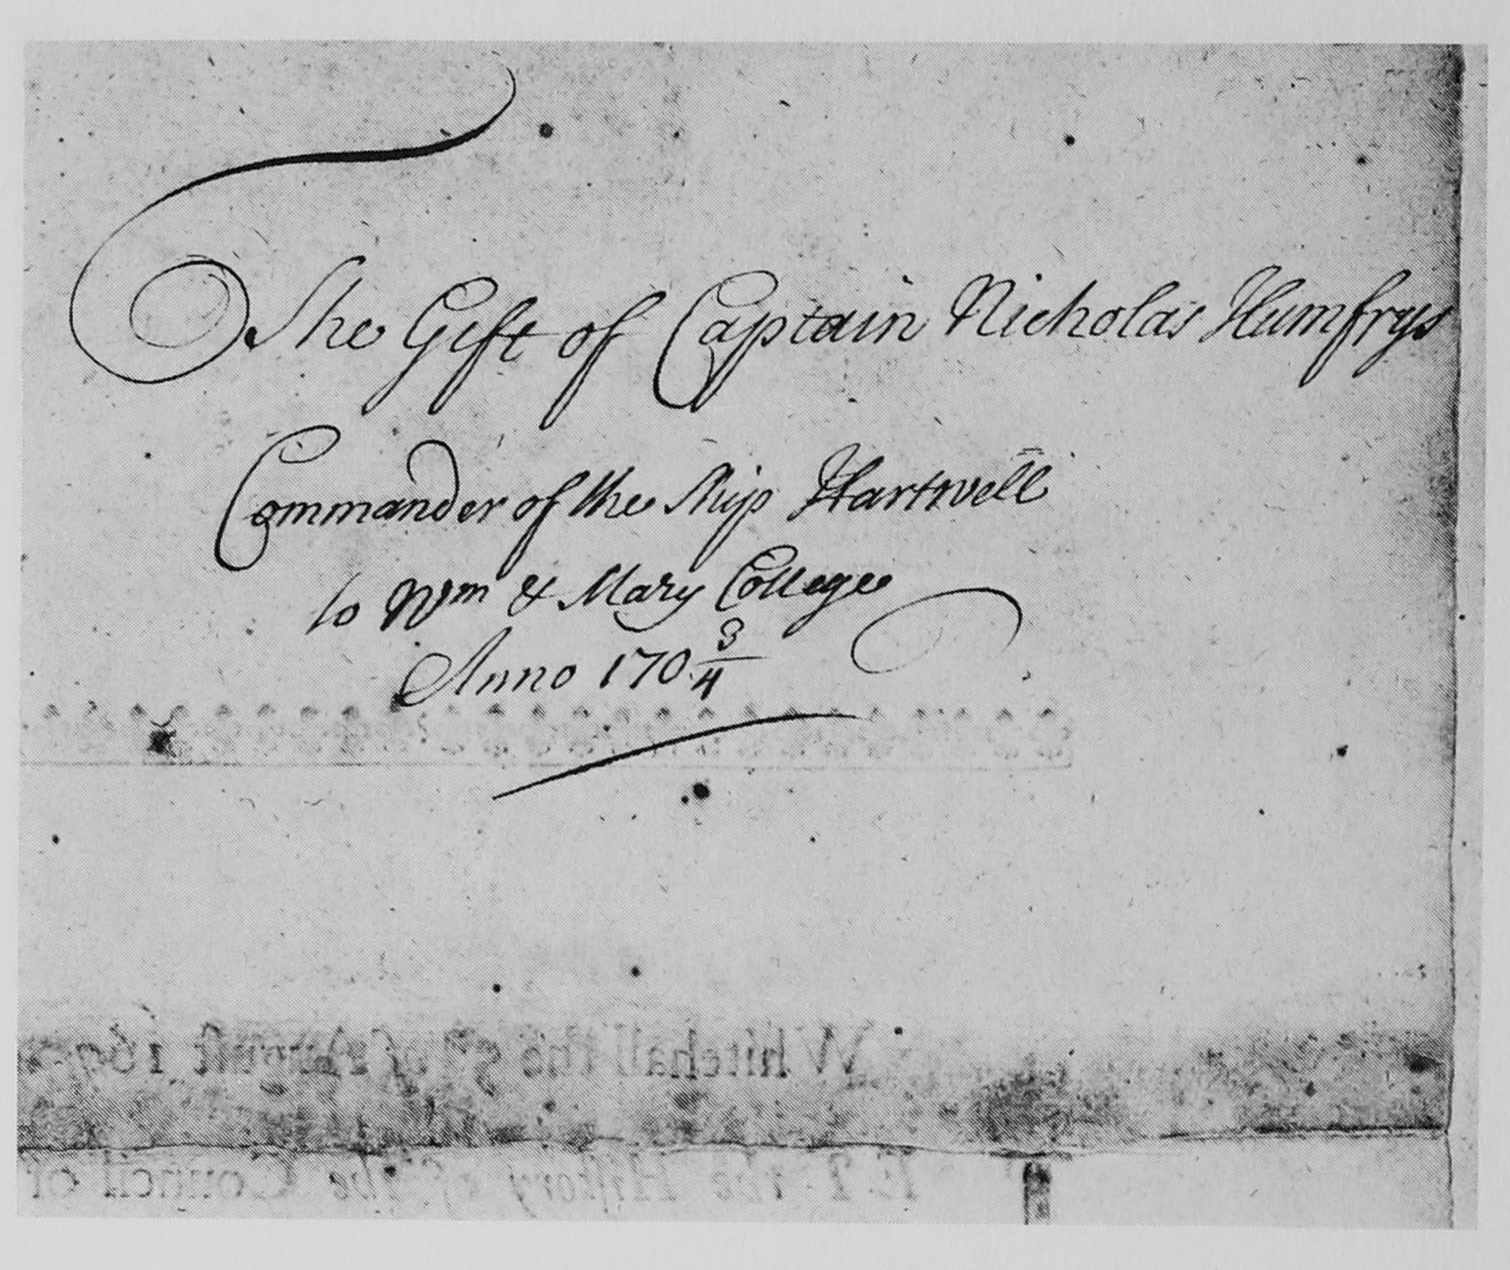 The Gift of Captain Nicholas Humfrys
Commander of the Ship Hartwell
to Wm & Mary College
Anno 170 3/4
Whitehall the 5th of August 167
the History of the Council of